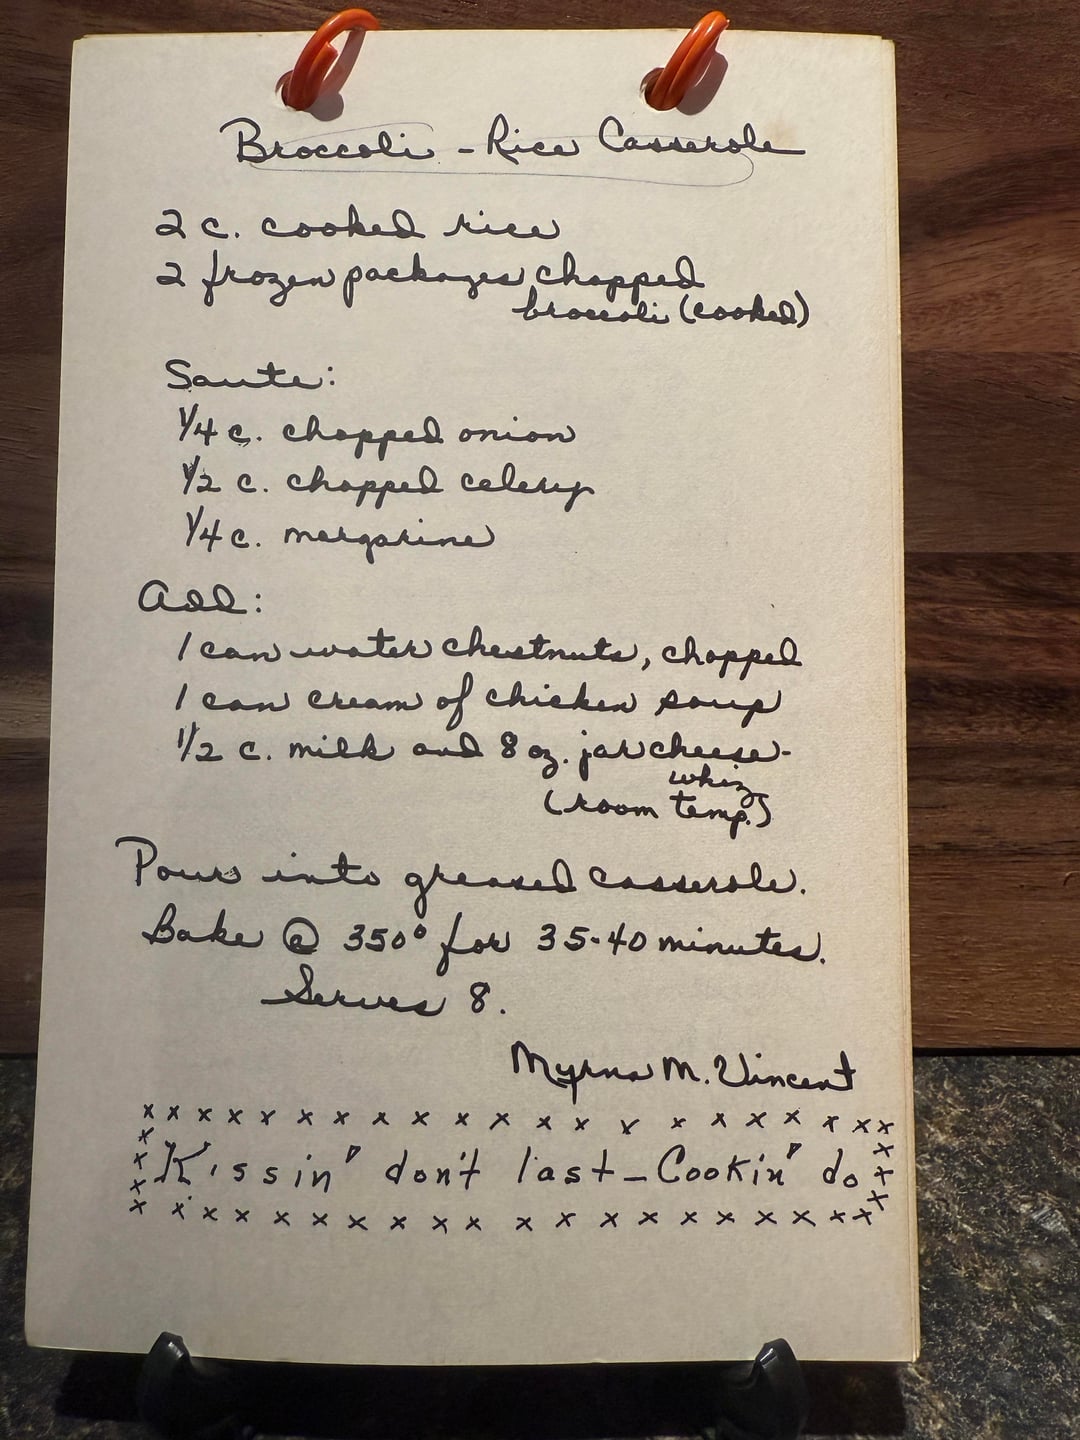 Broccoli - Rice Casserole
2 c. cooked rice
2 frozen packages chopped
broccoli (cooked)
Saute:
1/4 c. chopped onion
1/2 c. chopped celery
1/4 c. margarine
Add:
1 can water chestnuts, chopped
1 can cream of chicken soup
1/2 c. milk and 8 oz. jar cheese-
whiz
(room temp.)
Pour into greased casserole.
Bake @ 350° for 35-40 minutes.
Serves 8.
Myrna M. Vincent
x x x x x x x x x x x x x x x x x x x x x
Kissin' don't last - Cookin' do
x x x x x x x x x x x x x x x x x x x